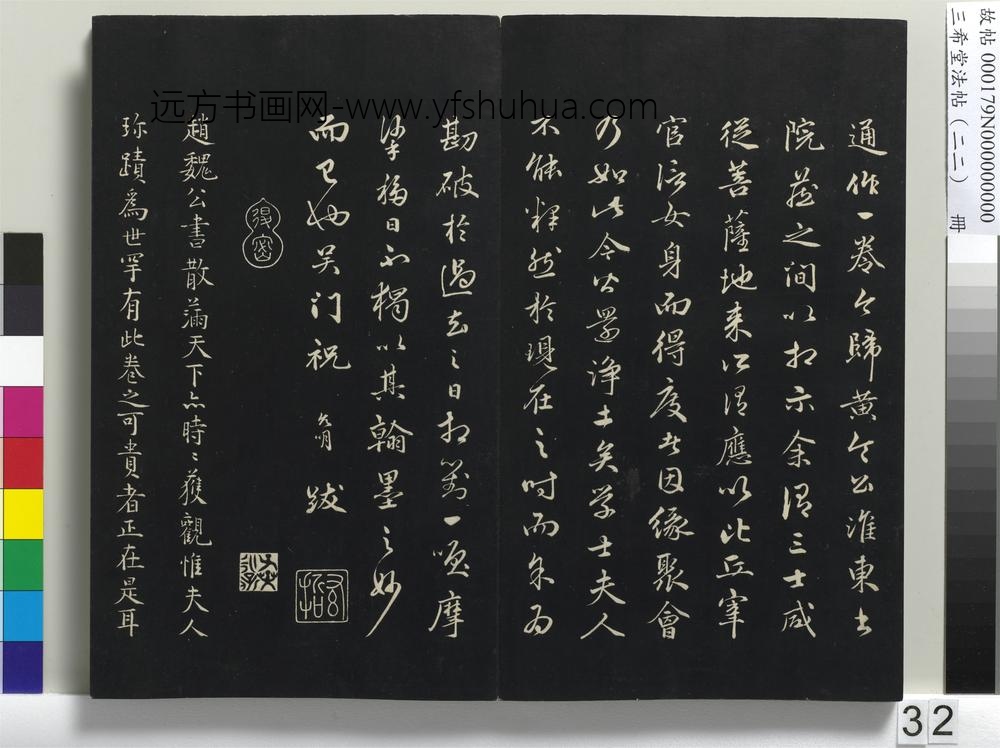 通作一卷今歸黃令公淮東書
院莊之間以相示余謂三士咸
從菩薩地來
應以比丘宰
官淫女身而得度者因緣聚會
乃如此今公寂淨土矣學士夫人
不能釋然於現在之時而余為
勘破於過去之日相對一噱摩
挲福日不獨以其翰墨之妙
而已也吳門祝
允明
跋
得密
趙魏公書散滿天下亦時〻獲觀惟夫人
珎蹟為世罕有此卷之可貴者正在是耳
远方书画网-www.yfshuhua.com
故帖 000179N00000000
三希堂法帖(二二) 冊
32